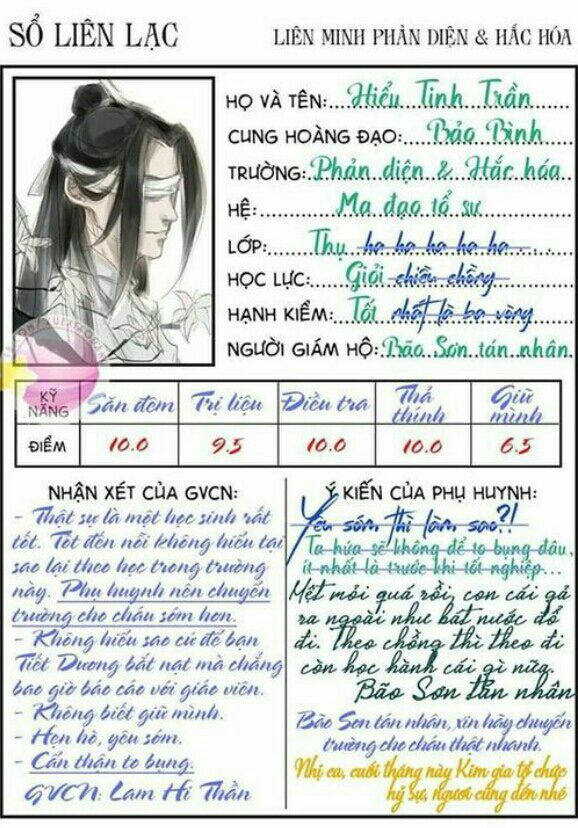 SỔ LIÊN LẠC
LIÊN MINH PHẢN DIỆN & HẮC HÓA
HỌ VÀ TÊN: Hiểu Tinh Trần
CUNG HOÀNG ĐẠO: Bảo Bình
TRƯỜNG: Phản diện & Hắc hóa
HỆ: Ma đạo tổ sư
LỚP: Thụ ha ha ha ha ha
HỌC LỰC: Giỏi chiều chồng
HẠNH KIỂM: Tốt nhất là ba vòng
NGƯỜI GIÁM HỘ: Bão Sơn tán nhân
KỸ NĂNG Săn đêm Trị liệu Điều tra Thả thính Giữ mình
ĐIỂM 10.0 9.5 10.0 10.0 6.5
NHẬN XÉT CỦA GVCN:
- Thật sự là một học sinh rất
tốt. Tốt đến nỗi không hiểu tại
sao lại theo học trong trường
này. Phụ huynh nên chuyển
trường cho cháu sớm hơn.
- Không hiểu sao cứ để bạn
Tiết Dương bắt nạt mà chẳng
bao giờ báo cáo với giáo viên.
- Không biết giữ mình.
- Hẹn hò, yêu sớm.
- Cẩn thận to bụng.
GVCN: Lam Hi Thần
Ý KIẾN CỦA PHỤ HUYNH:
Yêu sớm thì làm sao?!
Ta hứa sẽ không để to bụng đâu,
ít nhất là trước khi tốt nghiệp...
Mệt mỏi quá rồi, con cái gả
ra ngoài như bát nước đổ
đi. Theo chồng thì theo đi
còn học hành cái gì nữa.
Bão Sơn tán nhân
Bão Sơn tán nhân, xin hãy chuyển
trường cho cháu thật nhanh.
Nhị ca, cuối tháng này Kim gia tổ chức
hỷ sự, ngươi cũng đến nhé